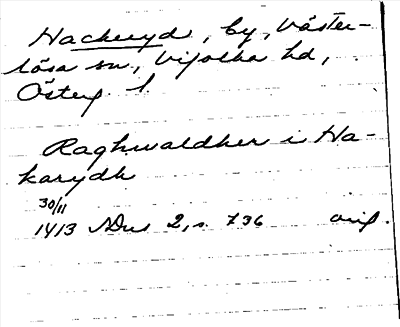 Hackeryd, by, Väster-
lösa sn, Vifolka hd,
Österg. l
Raghwaldher i Ha-
karydh
30/11
1413 SDns 2, s. 736 orig.